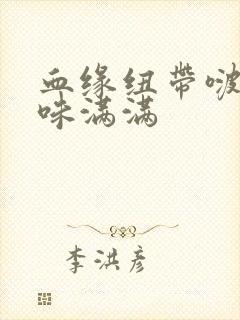 血缘纽带啵
咪满满
李洪彦